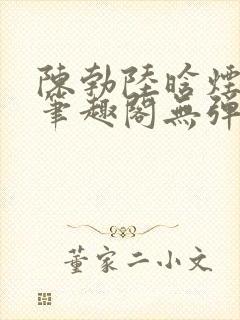 陳勃陸晗煙
筆趣閣無彈
董家二小文